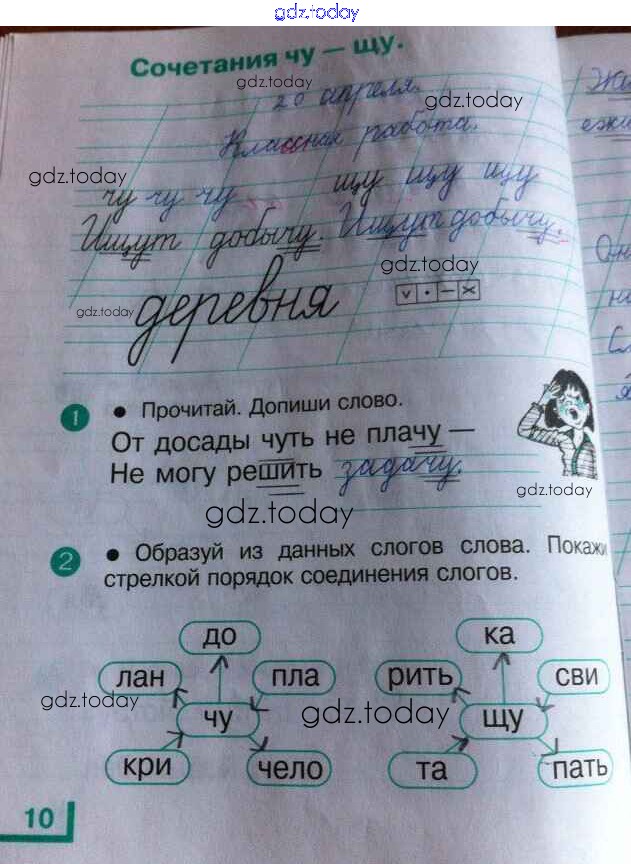 gdz.today
Сочетания чу — щу.
gdz.today
20 апреля.
gdz.today
Классная работа.
gdz.today
чу чу чу щу щу щу
Ищут добычу. Ищут добычу.
gdz.today
деревня
gdz.today
1 • Прочитай. Допиши слово.
От досады чуть не плачу —
Не могу решить задачу.
gdz.today
gdz.today
2 • Образуй из данных слогов слова. Покажи
стрелкой порядок соединения слогов.
до ка
лан пла рить сви
gdz.today
чу gdz.today щу
кри чело та пать
10